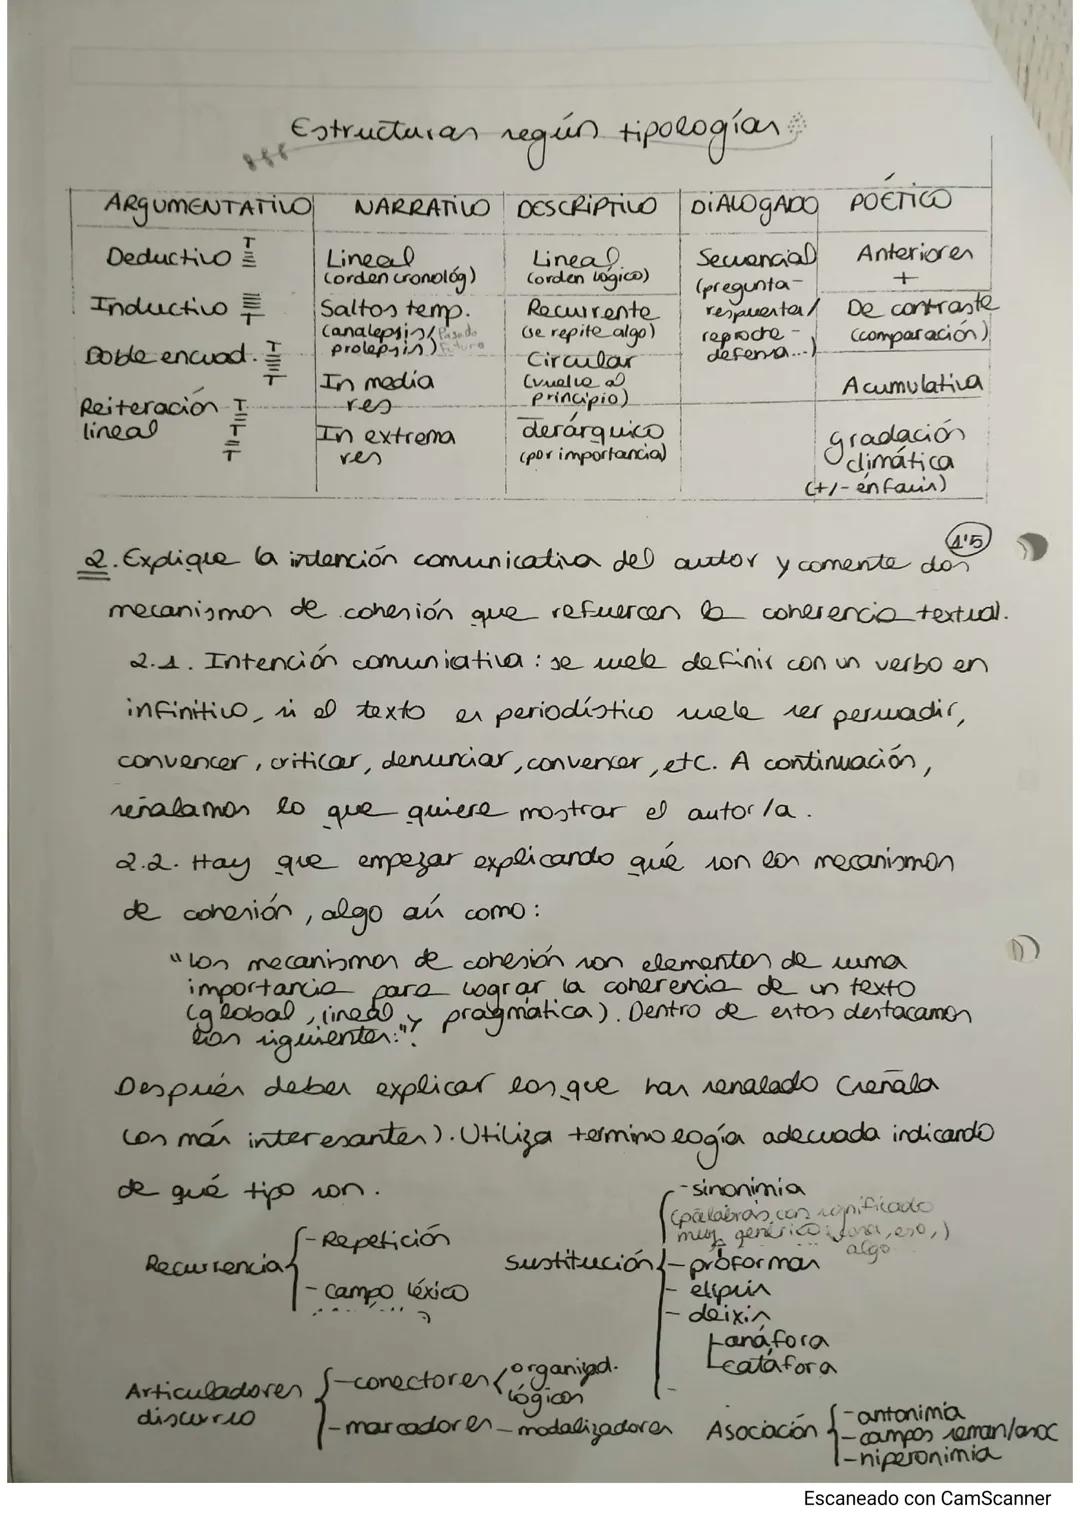 Estructuras según tipologías
ARGUMENTATIVO NARRATIVO DESCRIPTIVO DIALOGADO POÉTICO
Deductivo T
Inductivo T
Doble encuad. T T
Reiteración T
lineal T T
Lineal
(orden cronológ)
Saltos temp.
(analepsis/Pasado
prolepsis) Futuro
In media
res
In extrema
res
Lineal
(orden lógico)
Recurrente
(se repite algo)
Circular
(vuelve al
principio)
Jerárquico
(por importancia)
Secuencial
(pregunta-
respuesta/
reproche -
defensa...)
Anteriores
+
De contraste
(comparación)
Acumulativa
gradación
climática
(+/- énfasis)
1'5
2. Explique la intención comunicativa del autor y comente dos
mecanismos de cohesión que refuercen la coherencia textual.
2.1. Intención comunicativa: se suele definir con un verbo en
infinitivo, si el texto es periodístico suele ser persuadir,
convencer, criticar, denunciar, convencer, etc. A continuación,
señalamos lo que quiere mostrar el autor/a.
2.2. Hay que empezar explicando qué son los mecanismos
de cohesión, algo así como:
"Los mecanismos de cohesión son elementos de suma
importancia para lograr la coherencia de un texto
(global, lineal y pragmática). Dentro de estos destacamos
los siguientes:".
Después debes explicar los que has señalado (señala
los más interesantes). Utiliza terminología adecuada indicando
de qué tipo son.
Recurrencia
- Repetición
- campo léxico
Sustitución
- sinonimia
(palabras con significado
muy genérico: cosa, eso,)
algo
- proformas
- elipsis
- deixis
anáfora
catáfora
-
Articuladores
discurso
- conectores organizad.
lógicos
- marcadores - modalizadores
Asociación
- antonimia
- campos seman/asoc
- hiperonimia
Escaneado con CamScanner